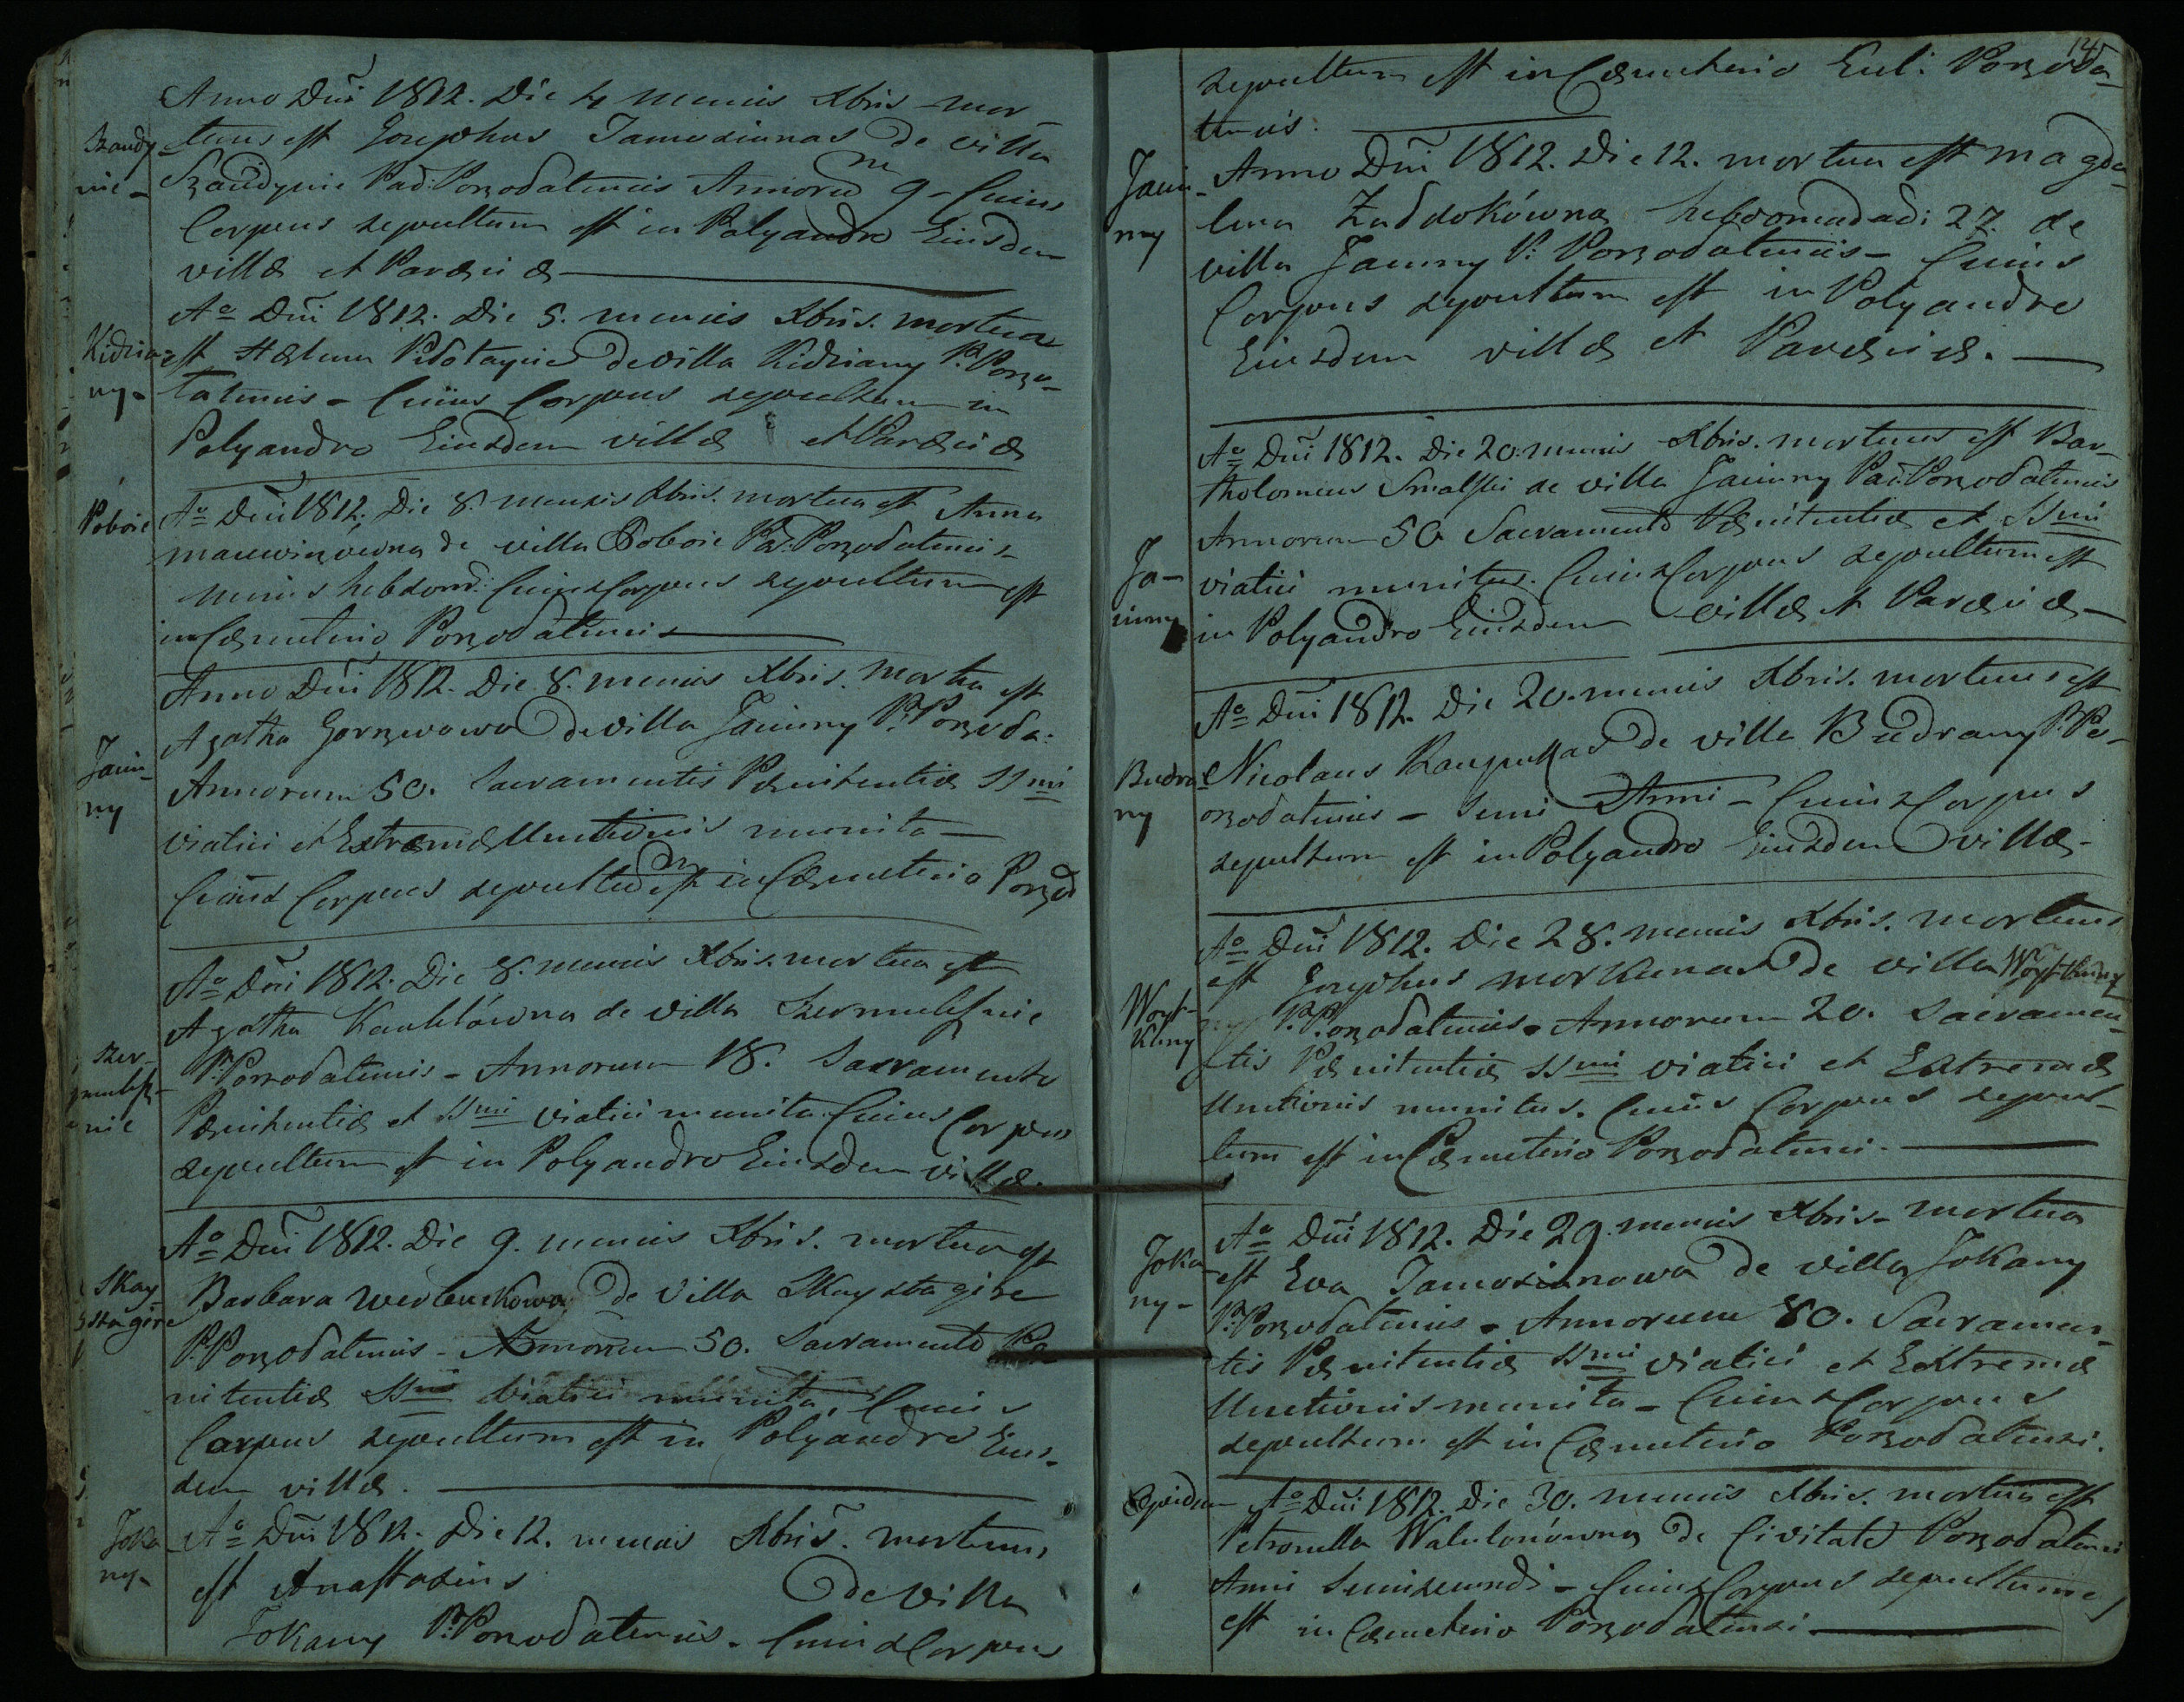 Szaudy
nie -
Anno Dni 1812. Die 4 mensis Xbris mor-
tuus est Josephus Jamoziunas de villa
Szaudynie Pad: Porzodatensis Annorum 9 - Cuius
Corpus sepultum est in Polyandro Eiusdem
villæ et Paræciæ
Kidzia-
ny -
Ao Dni 1812. Die 5. mensis Xbris. mortua
est Hælena de villa Kidziany P. Porzo-
datensis - Cuius Corpus sepultum in
Polyandro Eiusdem villæ et Paræciæ
Poboie
Ao Dni 1812. Die 8. mensis Xbris. mortua est Anna
de villa Poboie Pa: Porzodatensis
unius hebdom: Cuius Corpus sepultum est
in Cæmeterio Porzodatensis
Jaui-
ny
Anno Dni 1812. Die 8. mensis Xbris. mortua est
Agatha Gorzewowa de villa Jauiny P. Porzoda:
Annorum 50. Sacramentis Pænitentiæ SSmi
viatici et Extremæ Unctionis munita -
Cuius Corpus sepultum est in Cæmeterio Porzod
Szer-
muksz-
nie
Ao Dni 1812. Die 8. mensis Xbris. mortua est
Agatha Kauklówna de villa Szermuksznie
P. Porzodatensis - Annorum 18. Sacramento
Pænitentiæ et SSmi viatici munita. Cuius Corpus
sepultum est in Polyandro Eiusdem villæ.
Skay
stagire
Ao Dni 1812. Die 9. mensis Xbris. mortua est
Barbara de villa Skaystagire
P. Porzodatensis - Annorum 50. Sacramento Pæ-
nitentiæ SSmi viatici munita, Cuius
Corpus sepultum est in Polyandro Eius-
dem villæ.
Joka
ny -
Ao Dni 1812. Die 12. mensis Xbris. mortuus
est Anastasius de villa
Jokany P. Porzodatensis. Cuius Corpus
145
sepultum est in Cæmeterio Eccl: Porzoda-
tensis.
Jaui-
ny
Anno Dni 1812. Die 12. mortua est Magda-
lena Zuddokówna hebdomadad: 27. de
villa Jauiny P. Porzodatensis - Cuius
Corpus sepultum est in Polyandro
Eiusdem villæ et Paræciæ. -
Ja-
uiny
Ao Dni 1812. Die 20. mensis Xbris. mortuus est Bar-
tholomeus Smalski de villa Jauiny Pa: Porzodatensis
Annorum 50 Sacramento Pænitentiæ et SSmi
viatici munitus. Cuius Corpus sepultum est
in Polyandro Eiusdem villæ et Paræciæ -
Budra
ny
Ao Dni 1812. Die 20. mensis Xbris. mortuus est
Nicolaus de villa Budrany P. Po-
rzodatensis - Semi Anni - Cuius Corpus
sepultum est in Polyandro Eiusdem villæ -
Woyt-
kuny
Ao Dni 1812. Die 28. mensis Xbris. mortuus
est Josephus Morkunas de villa Woytkuny
ny P. Porzodatensis. Annorum 20. Sacramen-
tis Pænitentiæ SSmi viatici et Extremæ
Unctionis munitus. Cuius Corpus sepul-
tum est in Cæmeterio Porzodatensi.
Joka
ny -
Ao Dni 1812. Die 29. mensis Xbris - mortua
est Eva Jamozianowa de villa Jokany
P. Porzodatensis - Annorum 80. Sacramen-
tis Pænitentiæ SSmi viatici et Extremæ
Unctionis munita - Cuius Corpus
sepultum est in Cæmeterio Porzodatensi.
Opidum
Ao Dni 1812. Die 30. mensis Xbris. mortua est
Petronella Walulonówna de Civitate Porzodatensi
Anni Semisecundi - Cuius Corpus sepultum
est in Cæmeterio Porzodatensi -